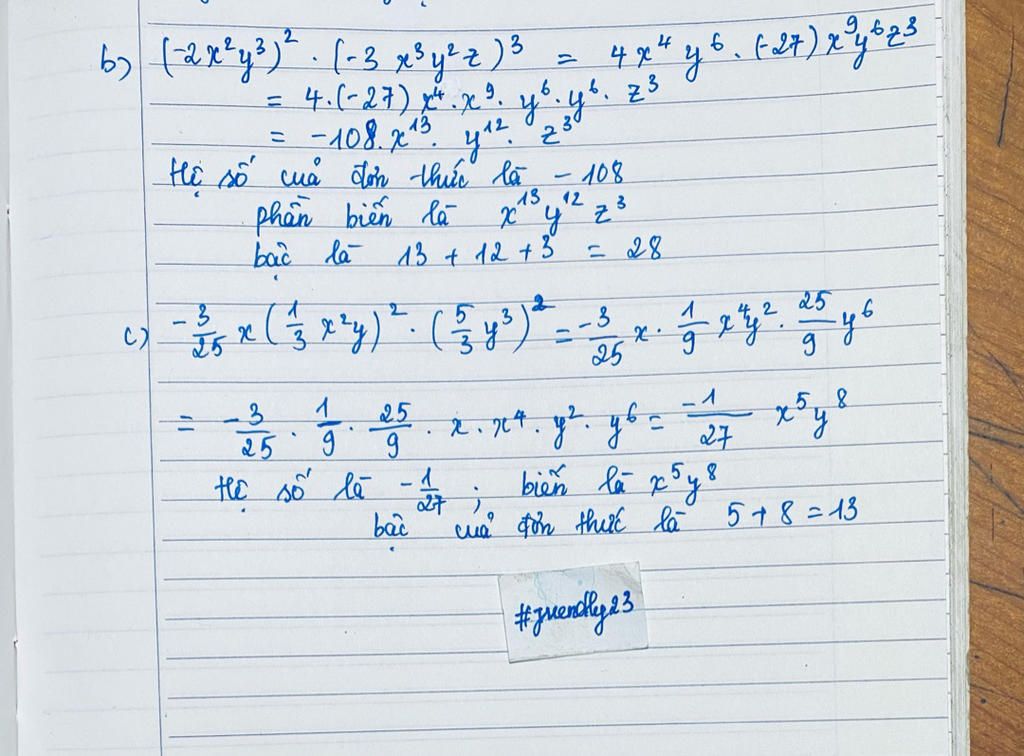 b) (-2x²y³)² . (-3 x³y²z)³ = 4x⁴ y⁶ . (-27) x⁹y⁶z³
= 4.(-27) x⁴. x⁹. y⁶. y⁶. z³
= -108. x¹³. y¹². z³
Hệ số của đơn thức là -108
phần biến là x¹³ y¹² z³
bậc là 13 + 12 + 3 = 28
c) -3/25 x (1/3 x²y)² . (5/3 y³)² = -3/25 x . 1/9 x⁴y² . 25/9 y⁶
= -3/25 . 1/9 . 25/9 . x . x⁴ . y² . y⁶ = -1/27 x⁵y⁸
Hệ số là -1/27 ; biến là x⁵y⁸
bậc của đơn thức là 5 + 8 = 13